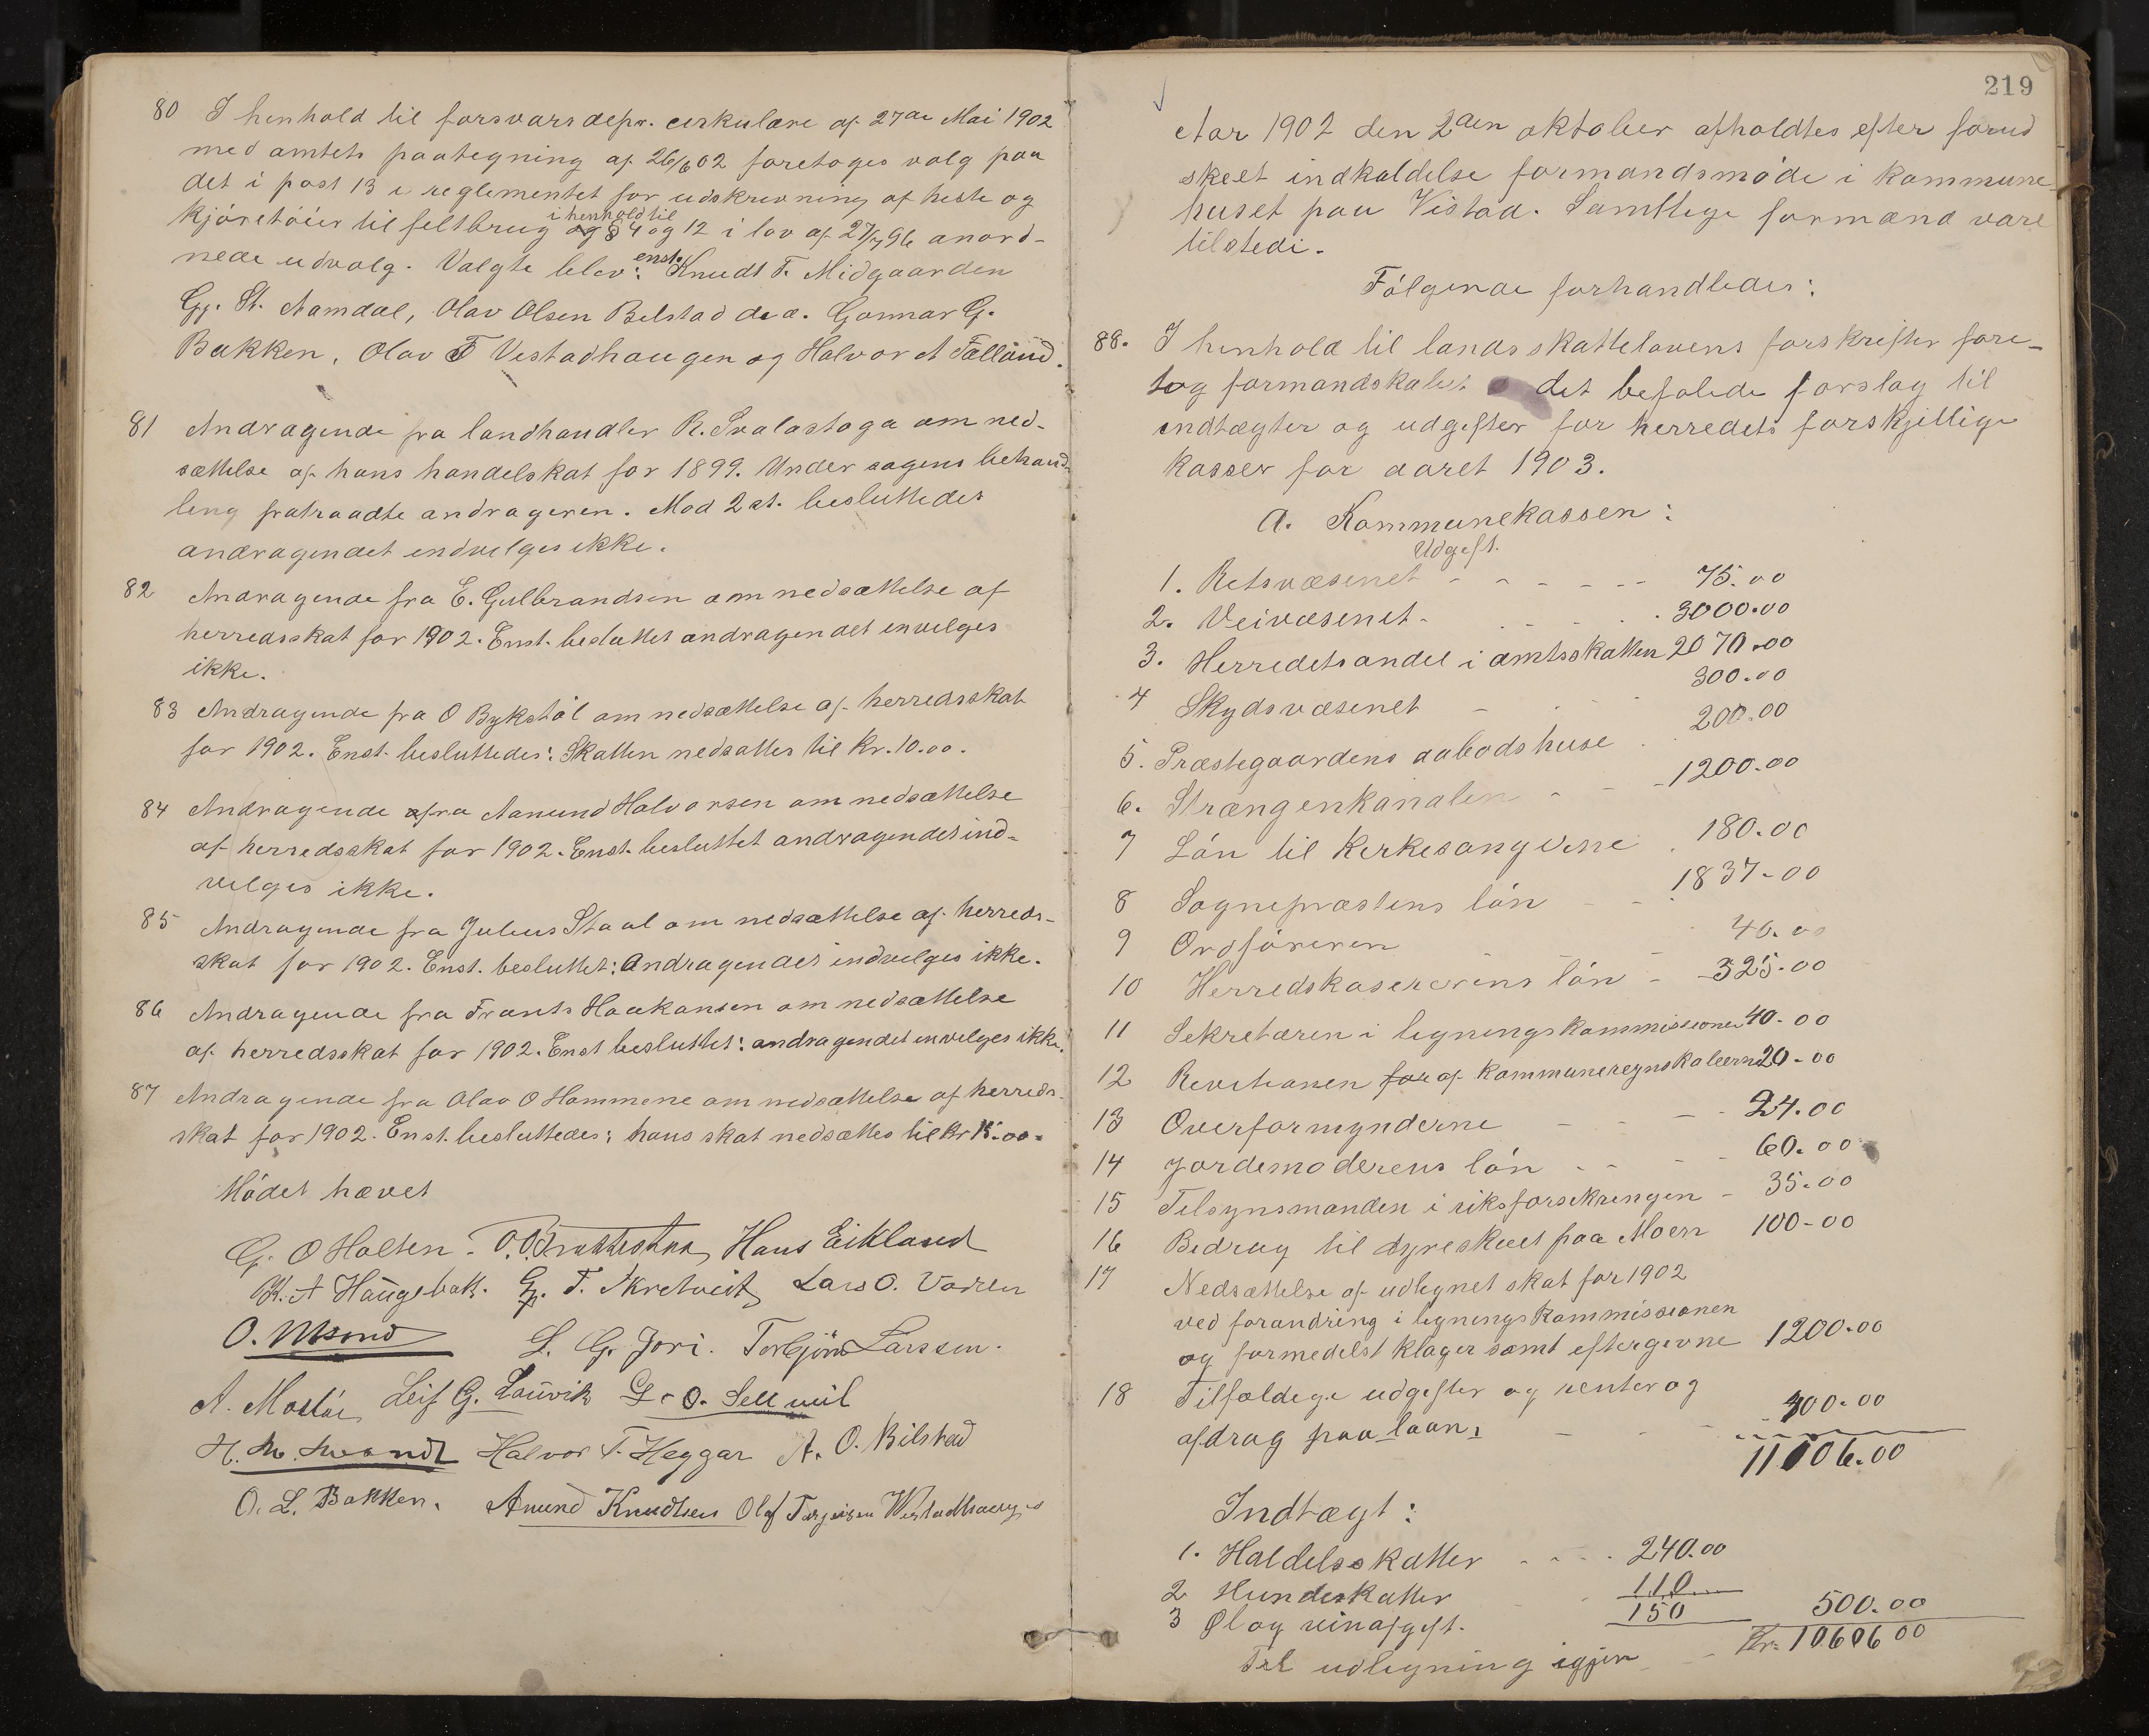 80 I henhold til forsvarsdepr. cirkulære af 27de Mai 1902
med amtets paategning af 26/6 02 foretoges valg paa
det i post 13 i reglementet for udskrivning af heste og
kjóretóier til feltbrug i henhold til § 4 og 12 i lov af 27/7 96 anord-
nede udvalg. Valgte blev: enst. Knudt T. Midgaarden
Gj. St. Aamdal, Olav Olsen Bilstad d.æ. Gonnar G.
Bakken, Olav T Vestadhaugen og Halvor A Felland.
81 Andragende fra landhandler R. Svalastoga om ned-
sættelse af hans handelskat for 1899. Under sagens behand-
ling fratraadte andrageren. Mod 2 st. besluttedes
andragendet indvilges ikke.
82 Andragende fra E. Gulbrandsen om nedsættelse af
herredsskat for 1902. Enst. besluttet andragendet invilges
ikke.
83 Andragende fra O Bykstól om nedsættelse af herredsskat
for 1902. Enst. besluttedes: Skatten nedsattes til Kr. 10.00.
84 Andragende fra Aanund Halvorsen om nedsættelse
af herredsskat for 1902. Enst. besluttet andragendet ind-
vilges ikke.
85 Andragende fra Julius Staal om nedsættelse af herreds-
skat for 1902. Enst. besluttet: Andragendet indvilges ikke.
86 Andragende fra Frants Haakansen om nedsættelse
af herredsskat for 1902. Enst besluttet: andragendet invilges ikke.
87 Andragende fra Olav O Hommene om nedsættelse af herreds-
skat for 1902. Enst. besluttedes: hans skat nedsættes til Kr 15.00.
Módet hævet
G. O Holten. O. O. Brattestaa Hans Eikland
K. A Haugebak. G. T. Skretveit Lars O. Varen
O. L. G. Jori. Torbjörn Larssen.
A. Leif G. Lauvik O.
H. Halvor T. Heggar A. O. Bilstad
O. L. Bakken. Anund Knudtsen Olaf Torgeirsen
219
Aar 1902 den 2den oktober afholdtes efter forud
skeet indkaldelse formandsmóde i kommune-
huset paa Vistad. Samtlige formænd vare
tilstede.
Fólgende forhandledes:
88. I henhold til landsskattelovens forskrifter fore-
tog formandskabet det befalede forslag til
indtægter og udgifter for herredets forskjellige
kasser for aaret 1903.
A. Kommunekassen:
Udgift.
1. Retsvæsenet - - - - - - 75.00
2. Veivæsenet - . . . 3000.00
3. Herredets andel i amtsskatten 2070.00
4 Skydsvæsenet - . - 300.00
5. Præstegaardens aabodshuse . 200.00
6. Strængenkanalen - - - 1200.00
7 Lón til kirkesangerne . 180.00
8 Sognepræstens lón - - . 1837.00
9 Ordfóreren 40.00
10 Herredskasererens lón - 325.00
11 Sekretæren i ligningskommissionen 40.00
12 Revisionen for af kommuneregnskaberne 20.00
13 Overformynderne - - - 24.00
14 Jordemoderens lón - - - - 60.00
15 Tilsynsmanden i riksforsikringen - 35.00
16 Bidrag til dyreskuet paa Moen 100.00
17 Nedsættelse af udlignet skat for 1902
ved forandring i ligningskommissionen
og formedelst klager samt eftergivne 1200.00
18 Tilfældige udgifter og renter og
afdrag paa laan, - - - 400.00
11106.00
Indtægt:
1. Haldelsskatter - - - . 240.00
2 Hundeskatter . 110
3 Øl og vinafgift. 150 500.00
Til udligning igjen - - Kr. 10606 00